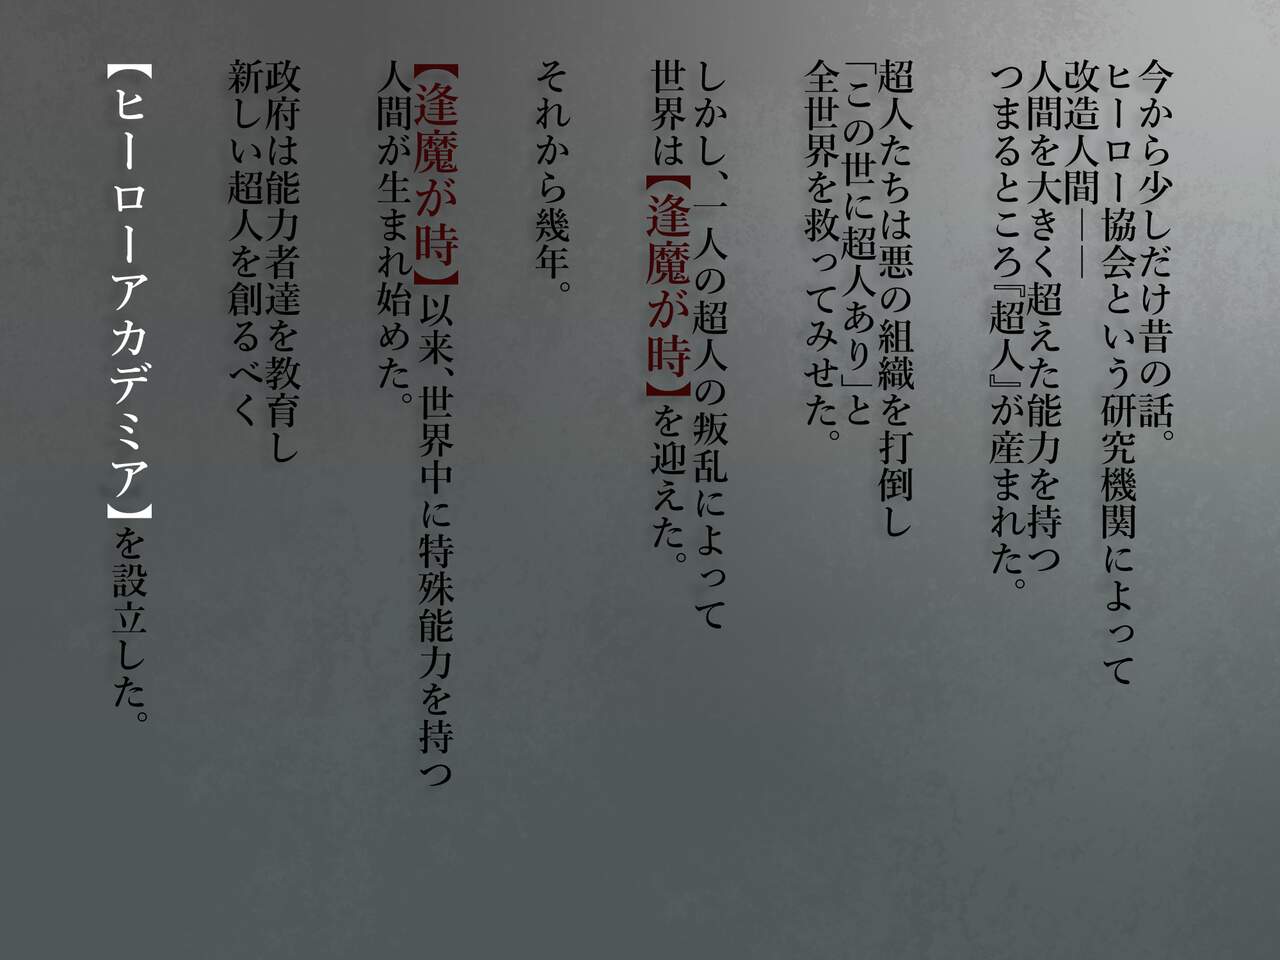 今から少しだけ昔の話。
ヒーロー協会という研究機関によって
改造人間――
人間を大きく超えた能力を持つ
つまるところ『超人』が産まれた。
超人たちは悪の組織を打倒し
「この世に超人あり」と
全世界を救ってみせた。
しかし、一人の超人の叛乱によって
世界は【逢魔が時】を迎えた。
それから幾年。
【逢魔が時】以来、世界中に特殊能力を持つ
人間が生まれ始めた。
政府は能力者達を教育し
新しい超人を創るべく
【ヒーローアカデミア】を設立した。